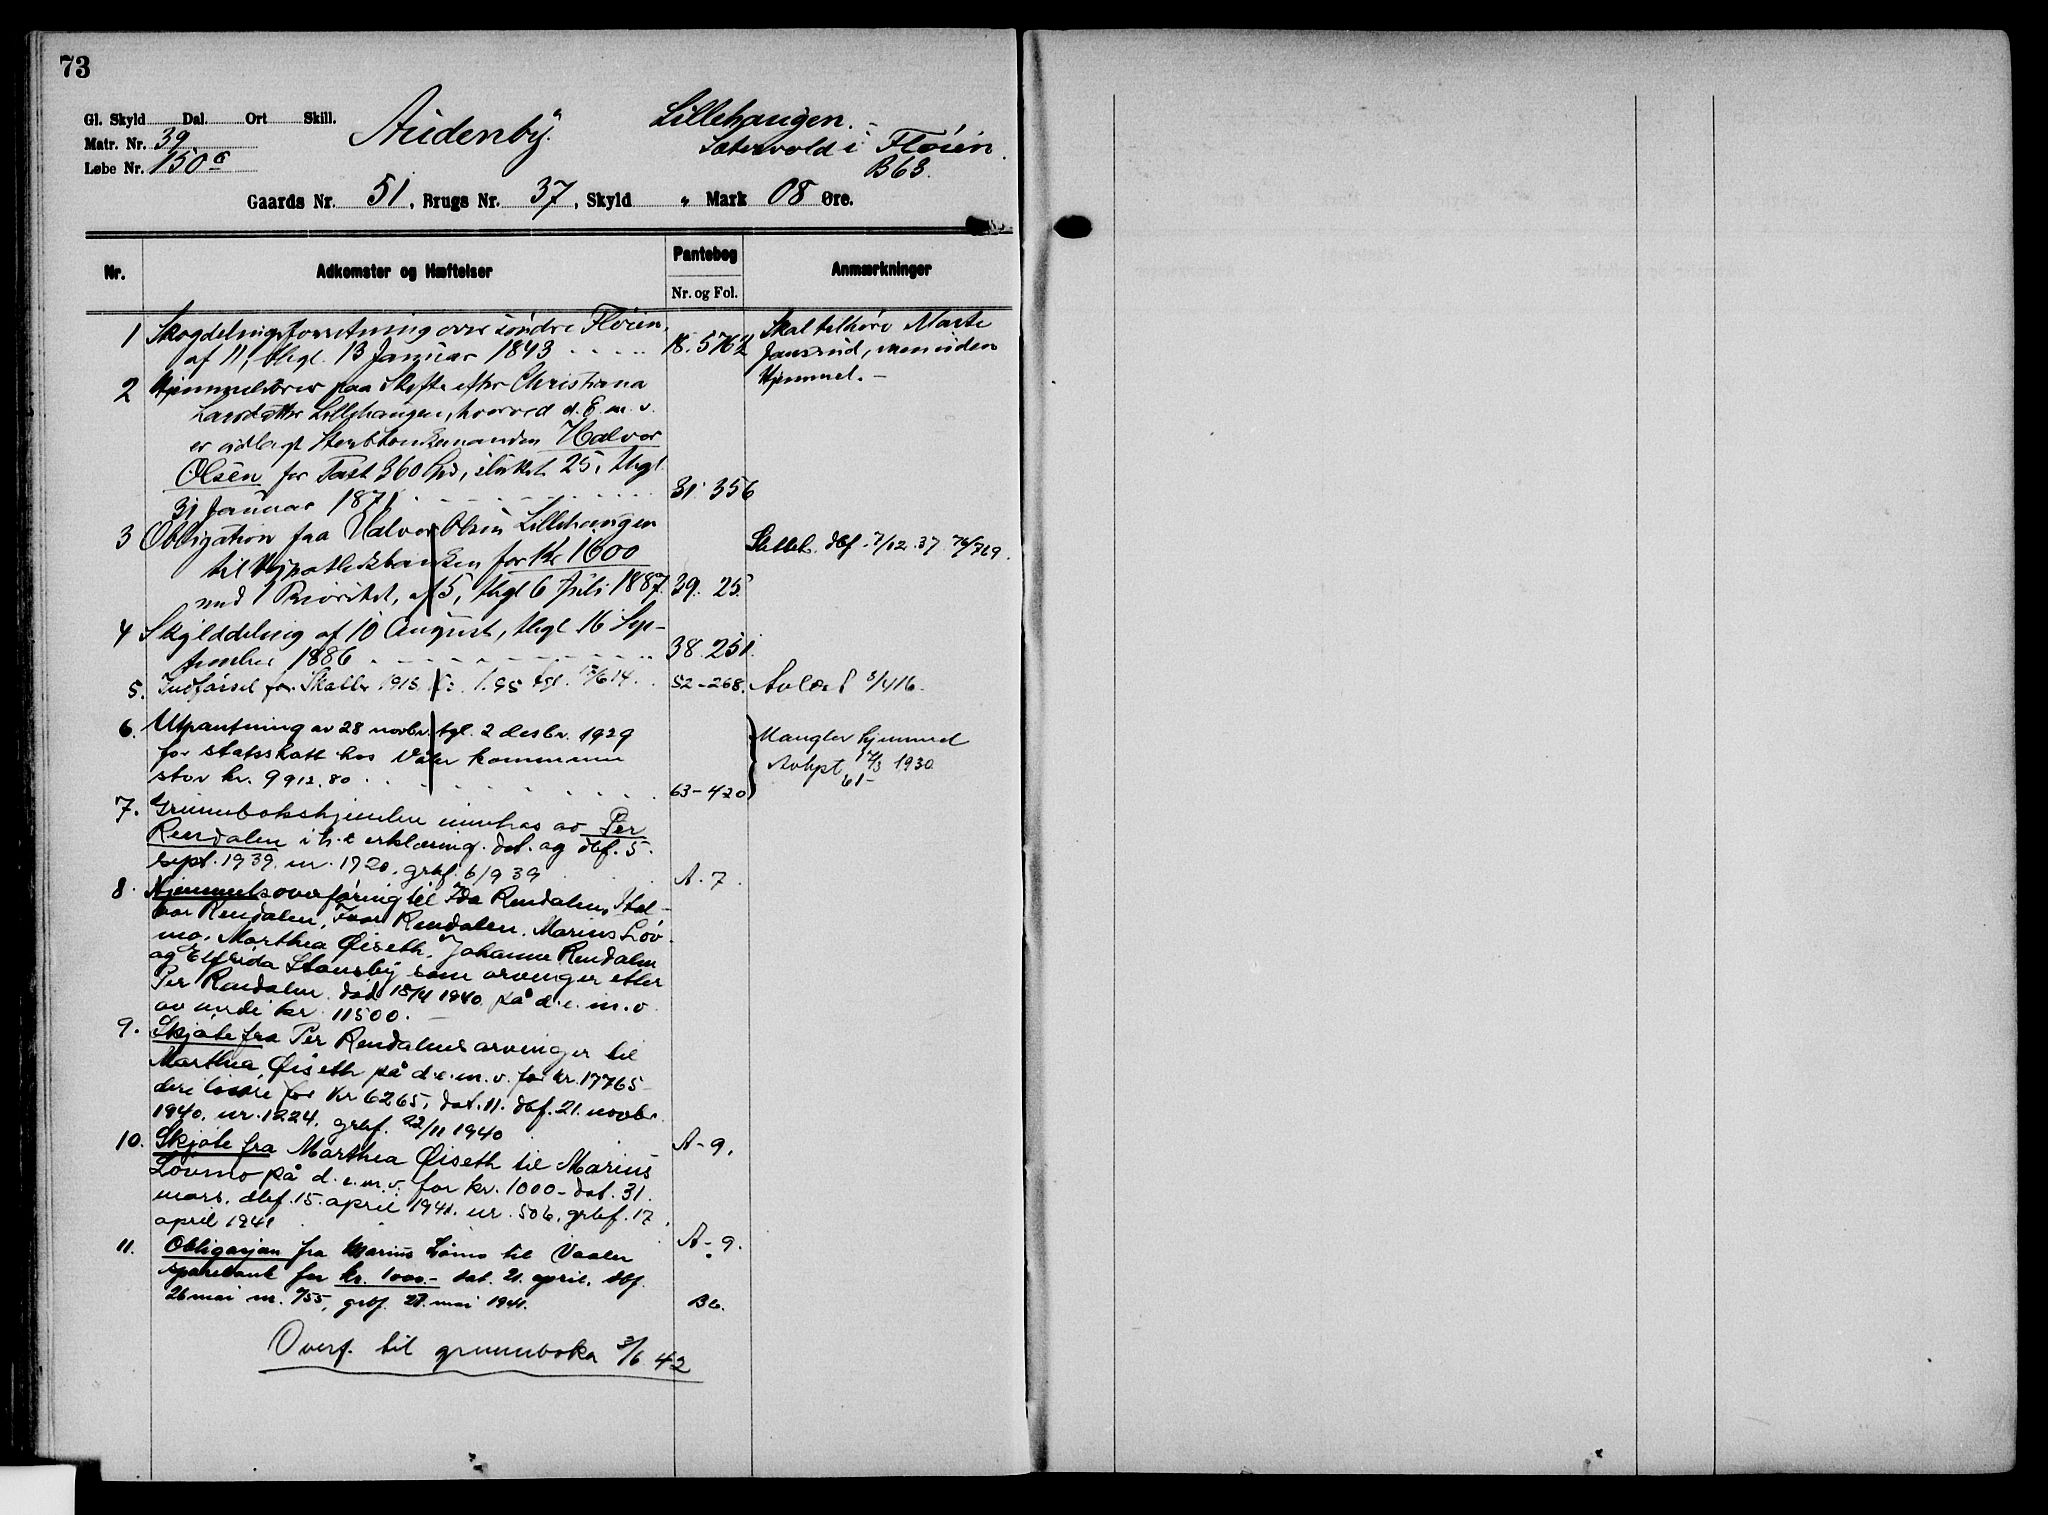 73
Gl. Skyld Dal. Ort Skill.
Matr. Nr. 39
Løbe Nr. 150 c
Audenby.
Lillehaugen.
Sætervold i Fløien.
B63.
Gaards Nr. 51, Brugs Nr. 37, Skyld " Mark 08 Øre.
Nr. Adkomster og Hæftelser Pantebog Anmærkninger
Nr. og Fol.
1 Skogdelingsforretning over søndre Fløien,
af 11, thgl. 13 Januar 1843 18. 576
Skal tilhøre Marte
Jansrud, men uden
Hjemmel. -
2 Hjemmelsbrev paa Skifte efter Christiana
Larsdatter Lillehaugen, hvorved d. E. m. v.
er udlagt Sterbboenkemanden Halvor
Olsen for Taxt 360 Spd, skiftet 25, thgl
31 Januar 1871 31 356
3 Obligation fra Halvor Olsen Lillehaugen
til Hypothekbanken for Kr 1600
med 1 Prioritet, af 5, thgl 6 Juli 1887. 39. 25.
Slettet. dbf. 7/12.37. 76/769.
4 Skylddeling af 10 August, thgl 16 Sep-
tember 1886 38. 251.
5. Indførsel for Skatter 1913. Kr. 1.95 tgl. 17/6 14. 52-268. Avlæst 3/4 16.
6. Utpantning av 28 novbr. tgl. 2 desbr. 1929
for statsskatt hos Våler kommune
stor kr. 9912.80 63-420
Mangler hjemmel
Avlyst 14/3 1930
61-
7. Grunnbokshjemlen innehas av Per
Rendalen i h. t. erklæring. dat. og dbf. 5.
sept. 1939. nr. 1720. grbf. 6/9 39 A. 7.
8. Hjemmelsoverføring til Ida Rendalen, Hal-
vor Rendalen, Ivar Rendalen. Marius Løv-
mo, Marthea Øiseth, Johanne Rendalen
og Elfrida Stensby som arvinger etter
Per Rendalen. dat 15/4 1940 på d. e. m. v
av verdi kr 11500. -
9. Skjøte fra Per Rendalens arvinger til
Marthea Øiseth på d. e. m. v. for kr. 17765
deri løsøre for kr 6265, dat. 11. dbf. 21. novbr
1940. nr. 1224. grbf. 22/11 1940 A-9.
10. Skjøte fra Marthea Øiseth til Marius
Løvmo på d. e. m. v. for kr. 1000- dat. 31.
mars. dbf. 15. april 1941. nr. 506. grbf. 17.
april 1941 A-9.
11. Obligasjon fra Marius Lømo til Vaaler
sparebank for kr. 1000.- dat. 21. april. dbf.
26 mai nr. 755, grbf. 27. mai 1941. B6.
Overf. til grunnboka 3/6 42